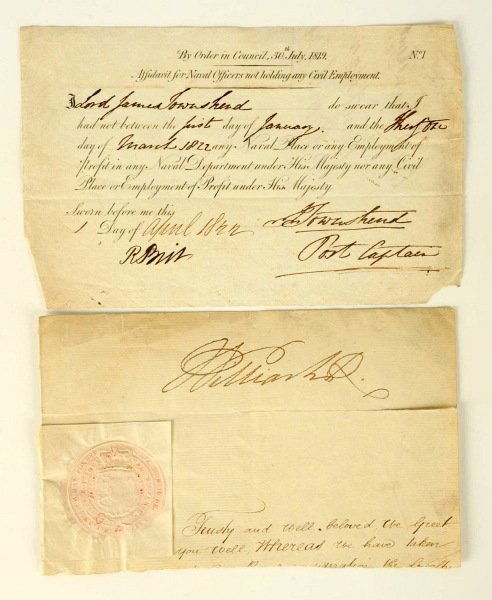 By Order in Council, 30th July, 1819. No. 1
Affidavit for Naval Officers not holding any Civil Employment.
I Lord James Townshend do swear that I
had not between the first day of January and the thirty one
day of March 1822 any Naval Place or any Employment of
Profit in any Naval Department under His Majesty nor any Civil
Place or Employment of Profit under His Majesty.
Sworn before me this
1 Day of April 1822
J Townshend
Post Captain
William R.
Trusty and well beloved We Greet
you well, Whereas We have taken
the